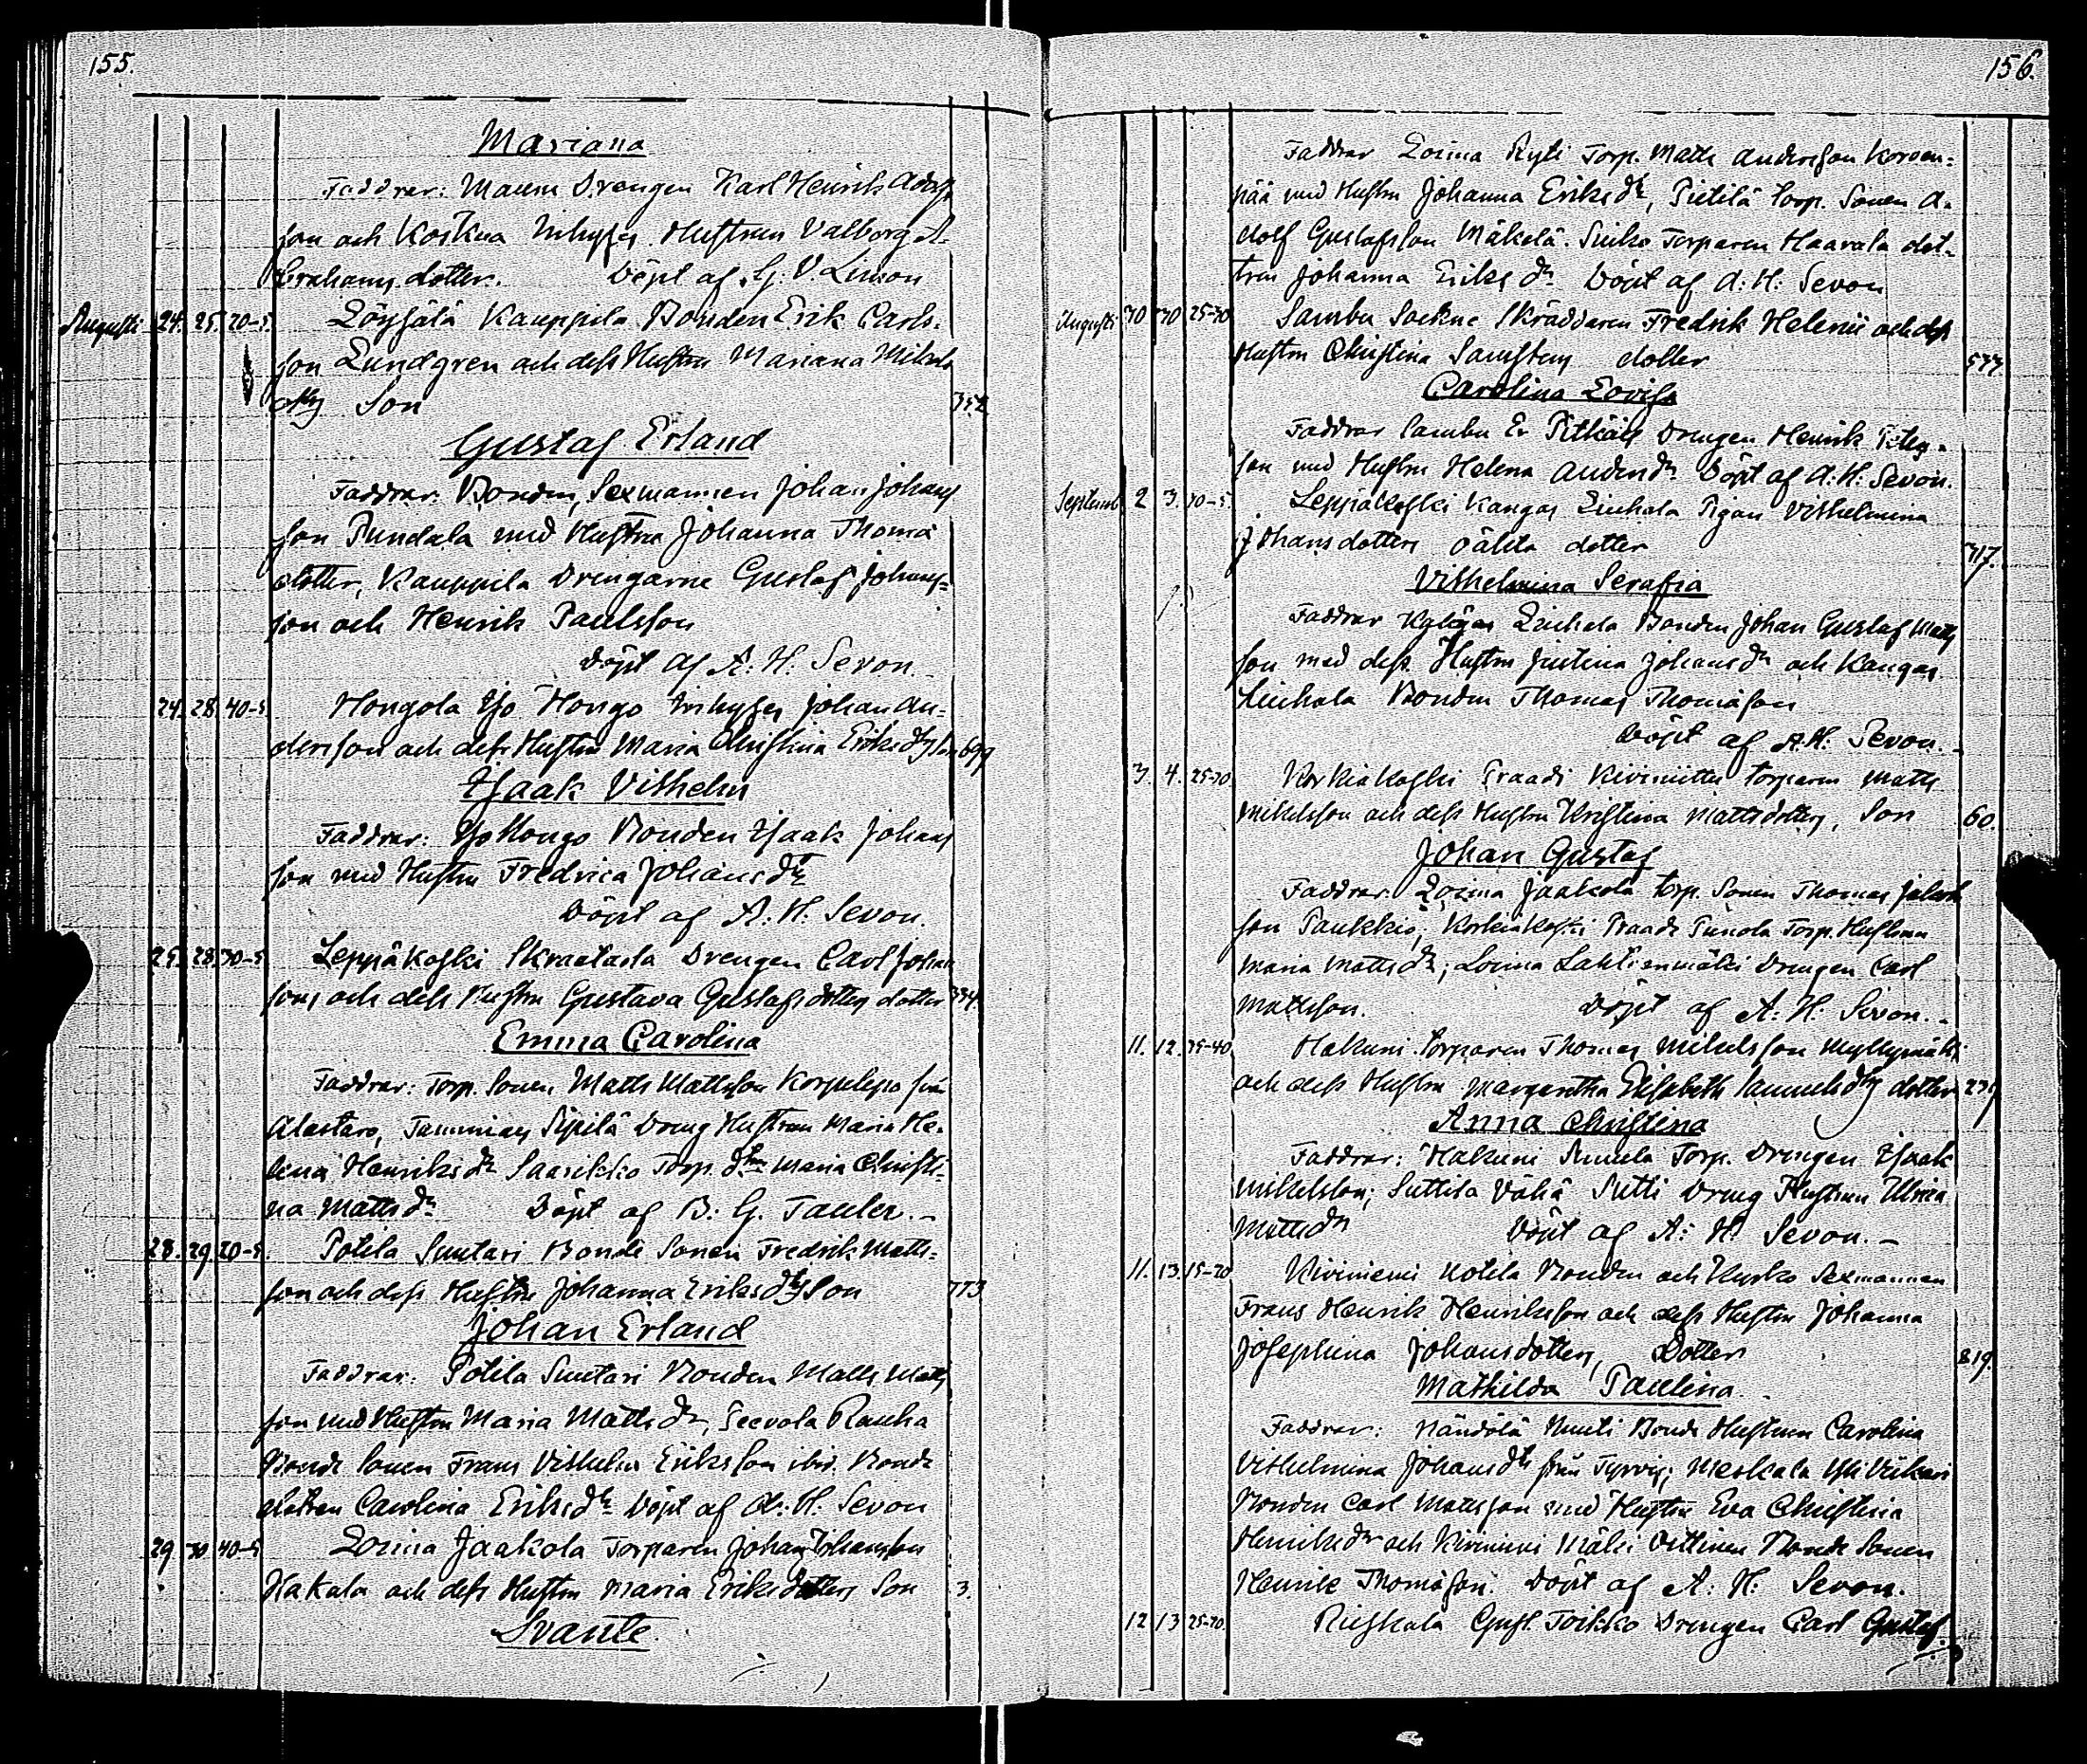 155.
Mariana
Faddrar: Drengen Karl Henrik Adolfs
son och Koskua Inhyses Hustrun Valborg A-
brahams dotter. Döpt af G. V. Limon
Augusti 24. 25. 20-5. Löysälä Kauppila Bonden Erik Carls-
son Lundgren och dess Hustru Mariana Mikels
dtrs Son 352
Gustaf Erland
Faddrar: Bonden, Sexmannen Johan Johans
son Pundala med Hustru Johanna Thomä
dotter, Kauppila Drengarne Gustaf Johans-
son och Henrik Paulsson
Döpt af A. H. Sevon.
24. 28. 40-5. Hongola Yso Hongo Inhyses Johan An-
dersson och dess Hustru Maria Christina Eriks dtrs Son 699
Isaak Vilhelm
Faddrar: Yso Hongo Bonden Isaak Johans
son med Hustru Fredrica Johans dtr
Döpt af A. H. Sevon.
25. 28. 30-5. Leppäkoski Skraatarla Drengen Carl Johans
sons och dess Hustru Gustava Gustafs dotters dotter 334
Emma Carolina
Faddrar: Torp. Sonen Matts Mattsson Korpelepo från
Alastaro, Tammiais Sipilä Dreng Hustrun Maria He-
lena Henriks dr Saarikko Torp. dtrn Maria Christi-
na Matts dr Döpt af B: G. Tauler. -
28. 29. 20-5. Potila Suutari Bonde Sonen Fredrik Matts-
son och dess Hustru Johanna Eriks dtrs Son 773
Johan Erland
Faddrar: Potila Suutari Bonden Matts Matts
son med Hustru Maria Matts dr, Seevola Rauha
Bonde Sonen Frans Vilhelm Eriksson ibid. Bonde
dottren Carolina Eriks dr Döpt af A: H. Sevon
29 30 40-5 Loima Jaakola Torparen Johan Johansson
Hakala och dess Hustru Maria Eriksdotters Son 3.
Svante.
156.
Faddrar Loima Ryti Torp. Matts Andersson Korven-
pää med Hustru Johanna Eriks dr, Pietilä Torp. Sonen A-
dolf Gustafsson Mäkelä. Suiko Torparen Haavala dot-
tren Johanna Eriks dr Döpt af A: H: Sevon
Augusti 30 30 25-30 Sambu Sockne Skräddaren Fredrik Helenii och dess
Hustru Christina Samstens dotter 577.
Carolina Lovisa
Faddrar Sambu Er Pitkäis Drengen Henrik Peters-
son med Hustru Helena Anders dr Döpt af A: H: Sevon.
Septemb 2 3. 30-5. Leppäkoski Kangas Liuhala Pigan Vilhelmina
Johansdotters oäkta dotter 317.
Vilhelmina Serafia
Faddrar Liuhala Bonden Johan Gustaf Matts
son med dess Hustru Justina Johans dr och Kangas
Liuhala Bonden Thomas Thomäson
Döpt af A. H. Sevon. -
3. 4. 25-30 Korkiakoski Praadi Kiviniittu Torparen Matts
Mikelsson och dess Hustru Kristina Mattsdotters, Son 60.
Johan Gustaf
Faddrar: Loima Jaakola Torp. Sonen Thomas
son Paukkio; Korkiakoski Praadi Torp. Hustrun
Maria Matts dr; Loima Lahtienmäki Drengen Carl
Mattsson. Döpt af A: H: Sevon. -
11. 12. 35-40 Hakuni Torparen Thomas Mikelsson Myllymäki
och dess Hustru Margaretha Elisabeth Samuels dtrs dotter
Anna Christina
Faddrar: Hakuni Torp. Drengen Isaak
Mikelsson; Suttila Vähä Sutti Dreng Hustrun Ulrica
Matts dr Döpt af A: H: Sevon. -
11. 13. 15-20 Kiviniemi Kotila Bonden och Kyrko Sexmannen
Frans Henrik Henriksson och dess Hustru Johanna
Josephina Johansdotters, Dotter 819.
Mathilda Paulina. -
Faddrar: Bonde Hustrun Carolina
Vilhelmina Johans dr från Tyrvis; Meskala Yli Vikari
Bonden Carl Mattsson med Hustru Eva Christina
Henriks dr och Kiviniemi Mäki Villinen Bonde Sonen
Henric Thomäson. Döpt af A: H: Sevon.
12 13 25-30. Rieskala Gusl. Toikko Drengen Carl Gustaf